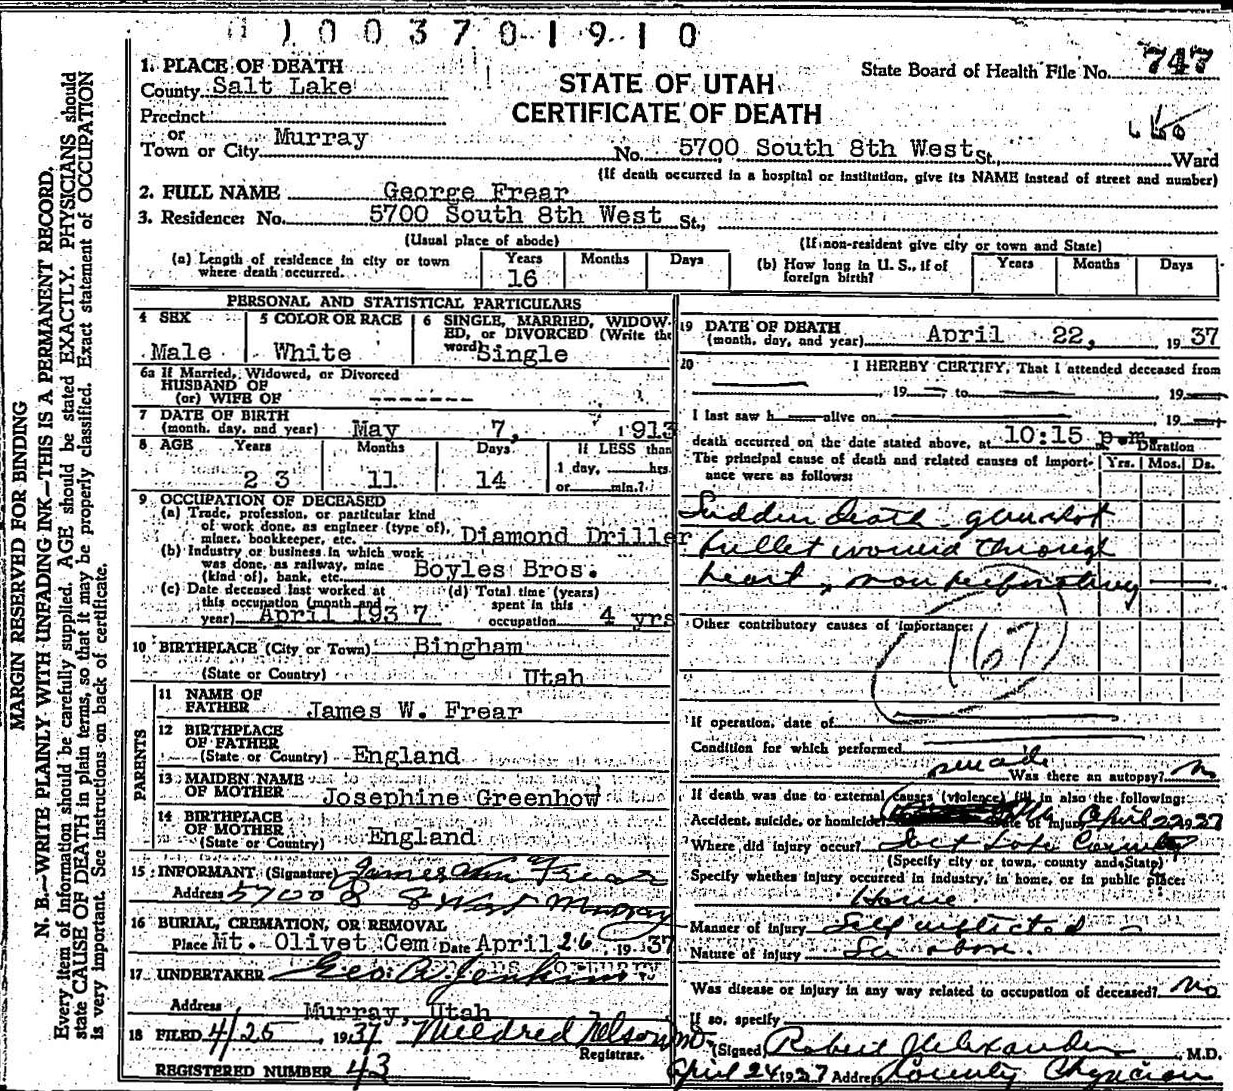 1003701910
1. PLACE OF DEATH
County Salt Lake
Precinct
or
Town or City Murray
STATE OF UTAH
CERTIFICATE OF DEATH
State Board of Health File No. 747
No. 5700 South 8th West St., Ward
(If death occurred in a hospital or institution, give its NAME instead of street and number)
2. FULL NAME George Frear
3. Residence: No. 5700 South 8th West St.,
(Usual place of abode) (If non-resident give city or town and State)
(a) Length of residence in city or town where death occurred. Years 16 Months Days
(b) How long in U. S., if of foreign birth? Years Months Days
PERSONAL AND STATISTICAL PARTICULARS
4 SEX Male
5 COLOR OR RACE White
6 SINGLE, MARRIED, WIDOWED, or DIVORCED (Write the word) Single
6a If Married, Widowed, or Divorced
HUSBAND OF
(or) WIFE OF -------
7 DATE OF BIRTH
(month, day, and year) May 7, 1913
8 AGE Years 23 Months 11 Days 14 If LESS than 1 day, hrs. or min.?
9 OCCUPATION OF DECEASED
(a) Trade, profession, or particular kind
of work done, as engineer (type of),
miner, bookkeeper, etc. Diamond Driller
(b) Industry or business in which work
was done, as railway, mine
(kind of), bank, etc. Boyles Bros.
(c) Date deceased last worked at
this occupation (month and
year) April 1937
(d) Total time (years)
spent in this
occupation 4 yrs
10 BIRTHPLACE (City or Town) Bingham
(State or Country) Utah
PARENTS
11 NAME OF
FATHER James W. Frear
12 BIRTHPLACE
OF FATHER
(State or Country) England
13 MAIDEN NAME
OF MOTHER Josephine Greenhow
14 BIRTHPLACE
OF MOTHER
(State or Country) England
15 INFORMANT, (Signature) James Wm Frear
Address 5700 S 8 West Murray
16 BURIAL, CREMATION, OR REMOVAL
Place Mt. Olivet Cem Date April 26, 1937
17 UNDERTAKER Geo. A. Jenkins
Address Murray, Utah
18 FILED 4/25 1937 Mildred Nelson
Registrar.
REGISTERED NUMBER 43
19 DATE OF DEATH
(month, day, and year) April 22, 1937
20 I HEREBY CERTIFY, That I attended deceased from
, 19 to , 19
I last saw h alive on , 19
death occurred on the date stated above, at 10:15 p.m.
The principal cause of death and related causes of importance were as follows:
Duration
Yrs. Mos. Ds.
Sudden death - gunshot
bullet wound through
heart, non perforating
Other contributory causes of importance:
167
If operation, date of
Condition for which performed
Was there an autopsy? no
If death was due to external causes (violence) fill in also the following:
suicide
Accident, suicide, or homicide Date of injury April 22 1937
Where did injury occur? Salt Lake County
(Specify city or town, county and State)
Specify whether injury occurred in industry, in home, or in public place:
Home
Manner of injury Self inflicted
Nature of injury See above.
Was disease or injury in any way related to occupation of deceased? No
If so, specify
(Signed) Robert J Alexander M.D.
April 24 1937 Address County Physician
MARGIN RESERVED FOR BINDING
N. B.—WRITE PLAINLY WITH UNFADING INK—THIS IS A PERMANENT RECORD.
Every item of information should be carefully supplied. AGE should be stated EXACTLY. PHYSICIANS should
state CAUSE OF DEATH in plain terms, so that it may be properly classified. Exact statement of OCCUPATION
is very important. See instructions on back of certificate.